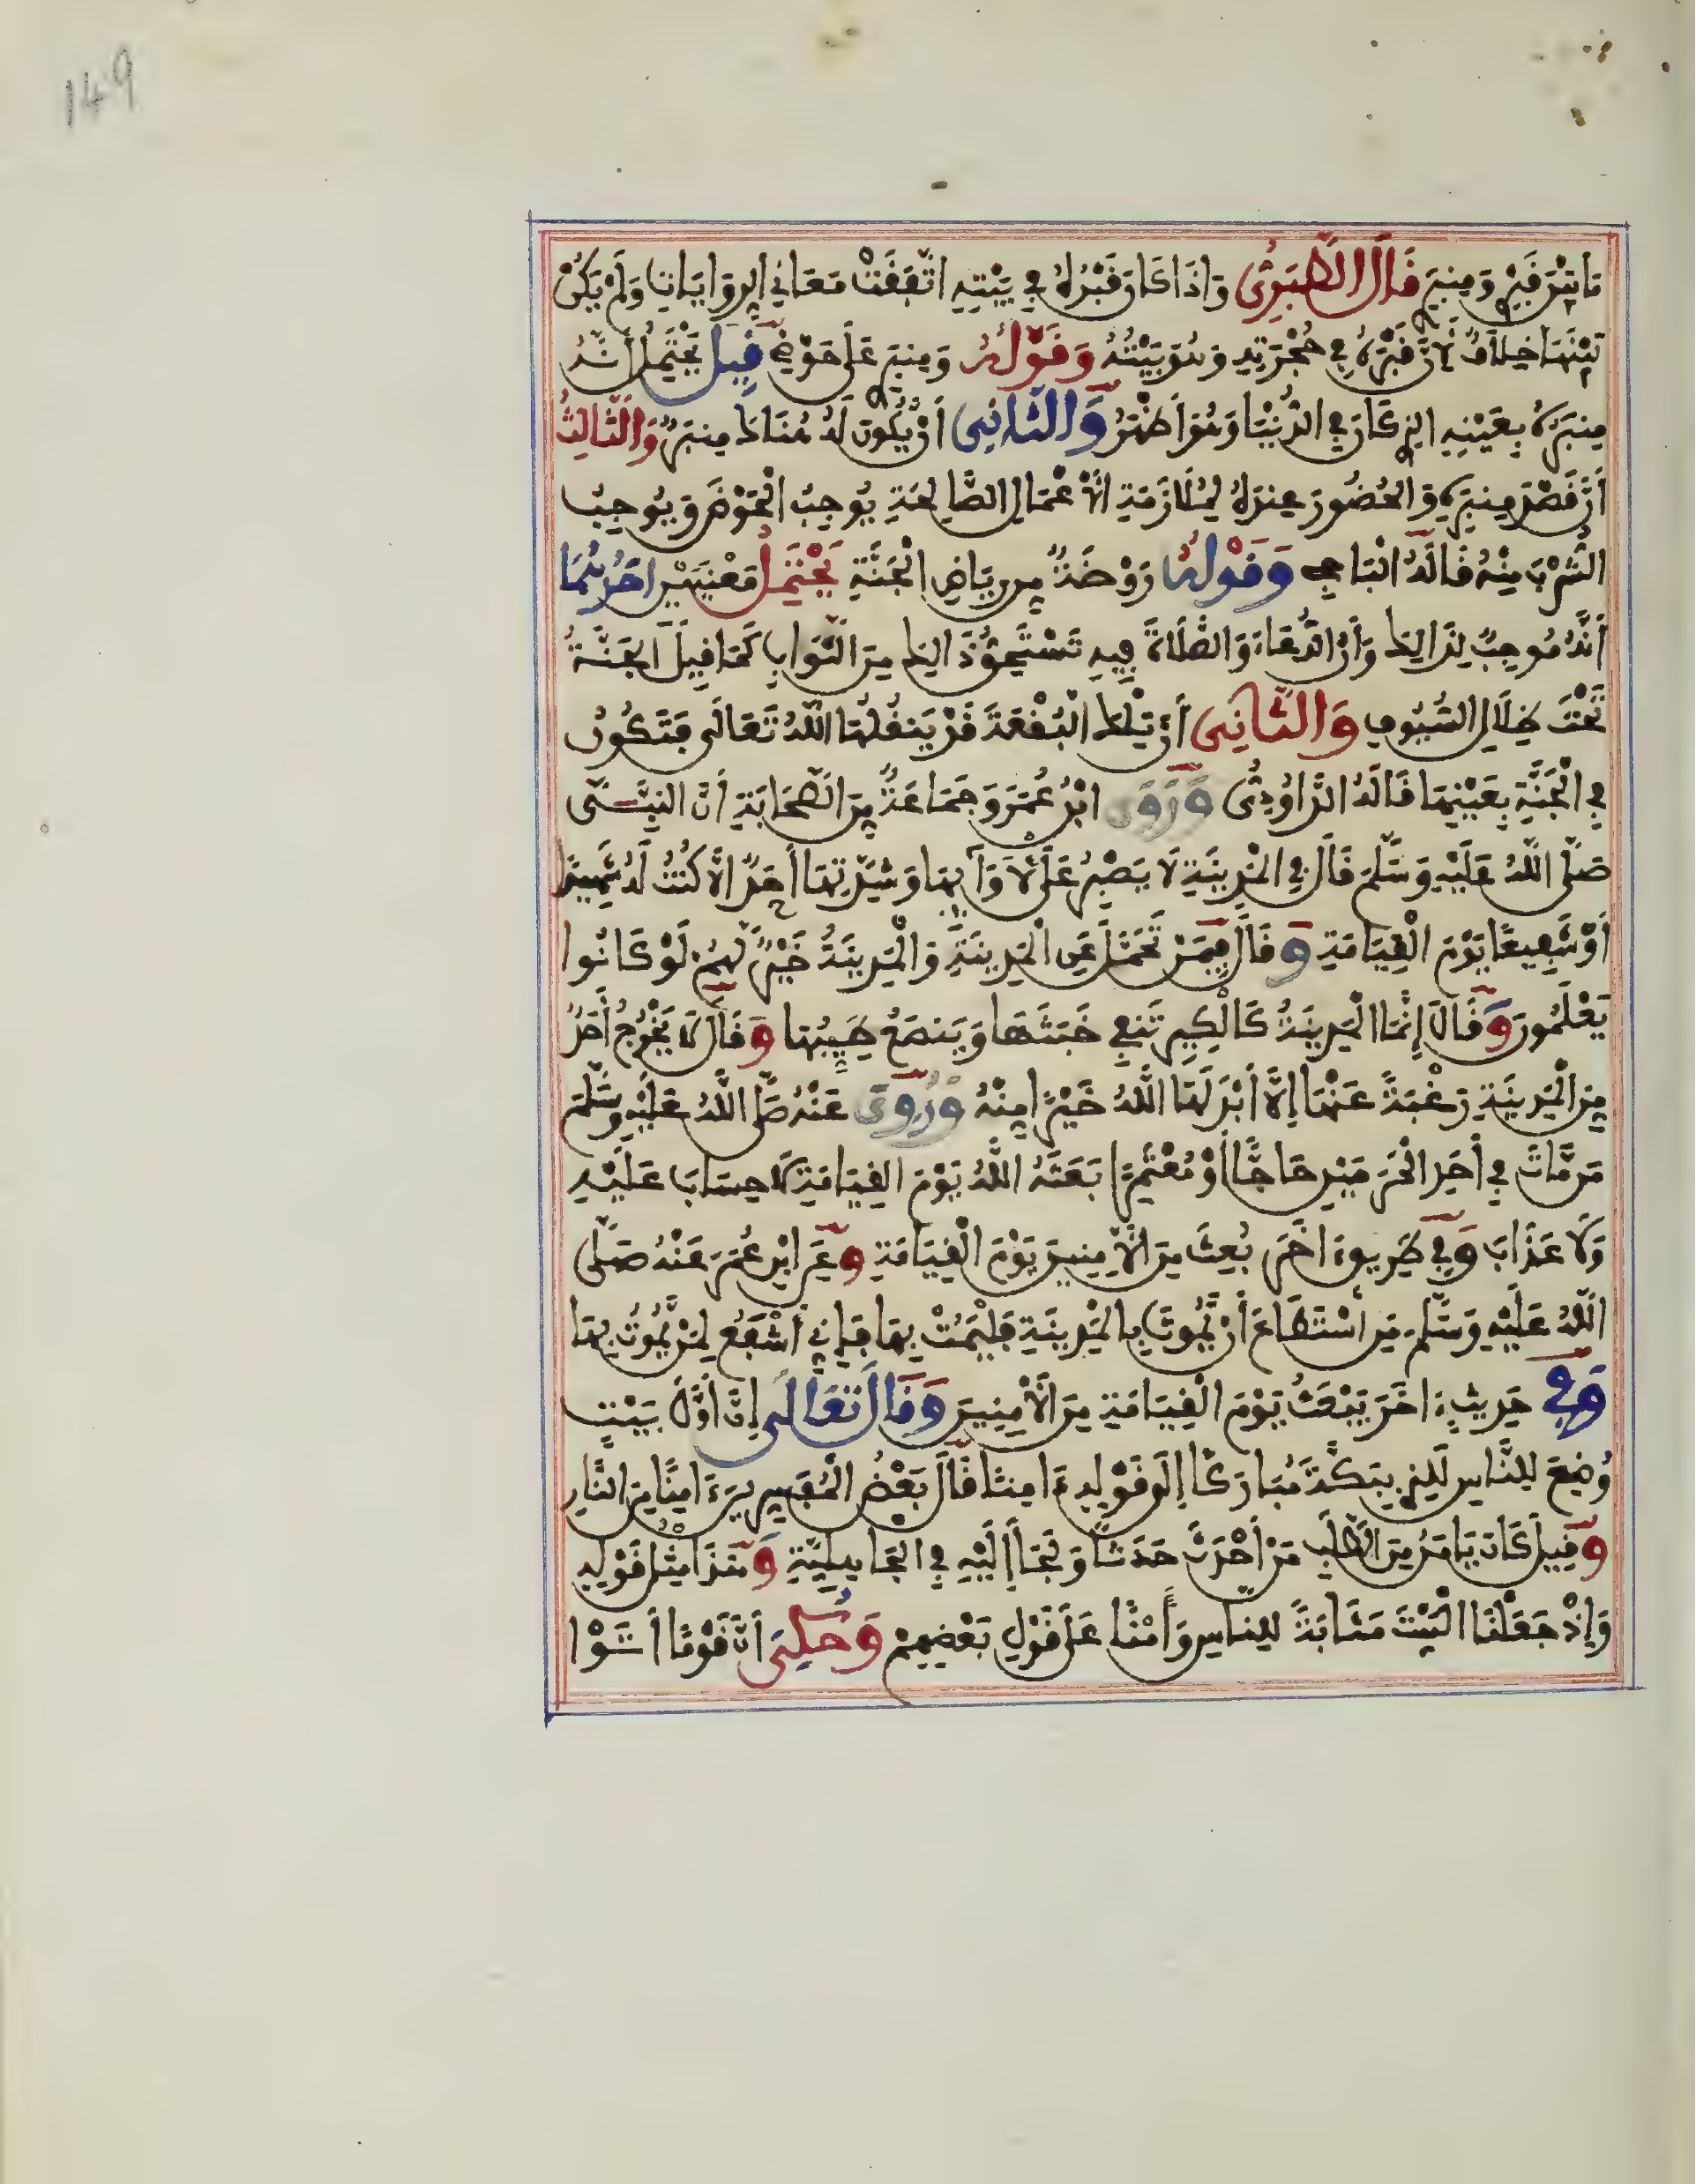 149
مَا بَيْنَ قَبْرِي وَمِنْبَرِي قَالَ الطَّبَرِيُّ وَإِذَا كَانَ قَبْرُهُ فِي بَيْتِهِ اتَّفَقَتْ مَعَانِي الرِّوَايَاتِ وَلَمْ يَكُنْ
بَيْنَهَا خِلَافٌ لِأَنَّ قَبْرَهُ فِي حُجْرَتِهِ وَهُوَ بَيْتُهُ وَقَوْلُهُ وَمِنْبَرِي عَلَى حَوْضِي قِيلَ يَحْتَمِلُ أَنَّهُ
مِنْبَرُهُ بِعَيْنِهِ الَّذِي كَانَ فِي الدُّنْيَا وَهُوَ أَظْهَرُ وَالثَّانِي أَنْ يَكُونَ لَهُ هُنَاكَ مِنْبَرٌ وَالثَّالِثُ
أَنَّ قَصْدَ مِنْبَرِهِ وَالْحُضُورَ عِنْدَهُ لِمُلَازَمَةِ الْأَعْمَالِ الصَّالِحَةِ يُورِدُ الْحَوْضَ وَيُوجِبُ
الشُّرْبَ مِنْهُ قَالَهُ الْبَاجِي وَقَوْلُهُ رَوْضَةٌ مِنْ رِيَاضِ الْجَنَّةِ يَحْتَمِلُ مَعْنَيَيْنِ أَحَدُهُمَا
أَنَّهُ مُوجِبٌ لِذَالِكَ وَأَنَّ الدُّعَاءَ وَالصَّلَاةَ فِيهِ تَسْتَحِقُّ ذَالِكَ مِنَ الثَّوَابِ كَمَا قِيلَ الْجَنَّةُ
تَحْتَ ظِلَالِ السُّيُوفِ وَالثَّانِي أَنَّ تِلْكَ الْبُقْعَةَ قَدْ يَنْقُلُهَا اللَّهُ تَعَالَى فَتَكُونُ
فِي الْجَنَّةِ بِعَيْنِهَا قَالَهُ الدَّاوُدِيُّ وَرَوَى ابْنُ عُمَرَ وَجَمَاعَةٌ مِنَ الصَّحَابَةِ أَنَّ النَّبِيَّ
صَلَّى اللَّهُ عَلَيْهِ وَسَلَّمَ قَالَ فِي الْمَدِينَةِ لَا يَصْبِرُ عَلَى لَأْوَائِهَا وَشِدَّتِهَا أَحَدٌ إِلَّا كُنْتُ لَهُ شَهِيدًا
أَوْ شَفِيعًا يَوْمَ الْقِيَامَةِ وَقَالَ فِيمَنْ تَحَمَّلَ عَنِ الْمَدِينَةِ وَالْمَدِينَةُ خَيْرٌ لَهُمْ لَوْ كَانُوا
يَعْلَمُونَ وَقَالَ إِنَّمَا الْمَدِينَةُ كَالْكِيرِ تَنْفِي خَبَثَهَا وَيَنْصَعُ طِيبُهَا وَقَالَ لَا يَخْرُجُ أَحَدٌ
مِنَ الْمَدِينَةِ رَغْبَةً عَنْهَا إِلَّا أَبْدَلَهَا اللَّهُ خَيْرًا مِنْهُ وَرُوِيَ عَنْهُ صَلَّى اللَّهُ عَلَيْهِ وَسَلَّمَ
مَنْ مَّاتَ فِي أَحَدِ الْحَرَمَيْنِ حَاجًّا أَوْ مُعْتَمِرًا بَعَثَهُ اللَّهُ يَوْمَ الْقِيَامَةِ لَا حِسَابَ عَلَيْهِ
وَلَا عَذَابَ وَفِي طَرِيقٍ اخَرَ بُعِثَ مِنَ الْآمِنِينَ يَوْمَ الْقِيَامَةِ وَعَنِ ابْنِ عُمَرَ عَنْهُ صَلَّى
اللَّهُ عَلَيْهِ وَسَلَّمَ مَنِ اسْتَطَاعَ أَنْ يَّمُوتَ بِالْمَدِينَةِ فَلْيَمُتْ بِهَا فَإِنِّي أَشْفَعُ لِمَنْ يَّمُوتُ بِهَا
وَفِي حَدِيثٍ اخَرَ يُبْعَثُ يَوْمَ الْقِيَامَةِ مِنَ الْآمِنِينَ وَقَالَ تَعَالَى إِنَّ أَوَّلَ بَيْتٍ
وُضِعَ لِلنَّاسِ لَلَّذِي بِبَكَّةَ مُبَارَكًا إِلَى قَوْلِهِ ءَامِنًا قَالَ بَعْضُ الْمُفَسِّرِينَ ءَامِنًا مِنَ النَّارِ
وَقِيلَ كَانَ يَامَنُ مِنَ الطَّلَبِ مَنْ أَحْدَثَ حَدَثًا وَلَجَأَ إِلَيْهِ فِي الْجَاهِلِيَّةِ وَهَذَا مِثْلُ قَوْلِهِ
وَإِذْ جَعَلْنَا الْبَيْتَ مَثَابَةً لِلنَّاسِ وَأَمْنًا عَلَى قَوْلِ بَعْضِهِمْ وَحُكِيَ أَنَّ قَوْمًا أَتَوْا